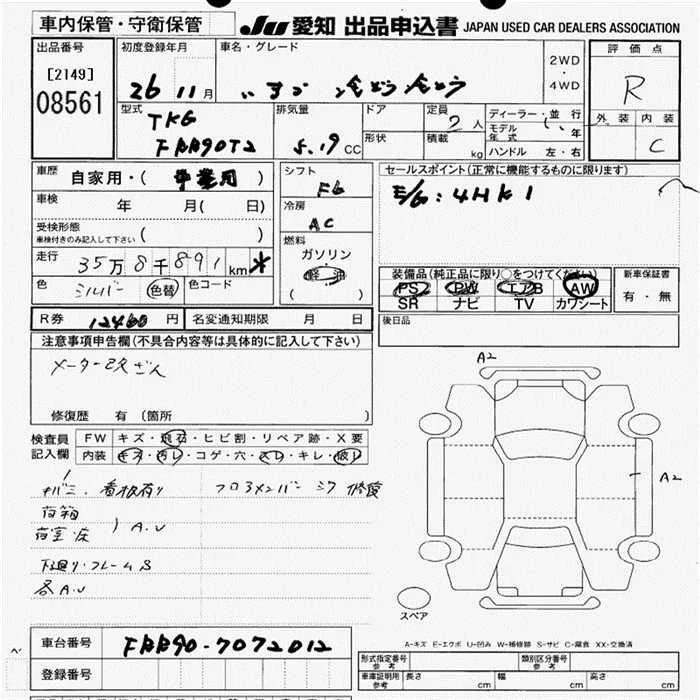 車内保管・守衛保管
JU 愛知 出品申込書 JAPAN USED CAR DEALERS ASSOCIATION
出品番号
[2149]
08561
初度登録年月
26 11月
車名・グレード
いすゞ
2WD
・
4WD
評価点
R
外装 内装
C
型式
TKG
FRR90T2
排気量
5.19 CC
ドア
形状
定員
2人
積載
kg
ディーラー・並行
モデル年式 年
ハンドル 左・右
車歴
自家用・( 事業用 )
シフト
F6
セールスポイント(正常に機能するものに限ります)
E/G:4HK1
車検
年 月( 日)
冷房
AC
受検形態
車検付きのみ記入して下さい ( )
燃料
ガソリン
軽油
( )
走行
35万8千891km *
色
シルバー 色替
色コード
装備品(純正品に限り○をつけてください)
PS PW エアB AW
SR ナビ TV カワシート
新車保証書
有・無
R券 12460円
名変通知期限 月 日
後日品
注意事項申告欄(不具合内容等は具体的に記入して下さい)
メーター改ざん
修復歴 有(箇所 )
検査員
記入欄
FW キズ・飛石・ヒビ割・リペア跡・X要
内装 キズ・汚レ・コゲ・穴・スレ・キレ・破レ
キバミ、看板有り
フロ3メンバーシワ 修復
荷箱
荷室・床 ) A.U
下廻り・フレームS
各A.U
A2
A2
スペア
A-キズ E-エクボ U-凹み W-補修跡 S-サビ C-腐食 XX-交換済
車台番号 FRR90-7072012
登録番号
形式指定番号
参考
類別区分番号
参考
車庫証明用
参考
長さ cm 幅 cm 高さ cm